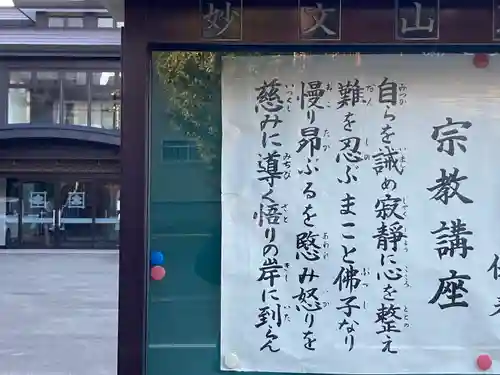 妙文山
宗教講座
自らを誡め寂静に心を整え
難を忍ぶまこと佛子なり
慢り昂ぶるを愍み怒りを
慈みに導く悟りの岸に到らん